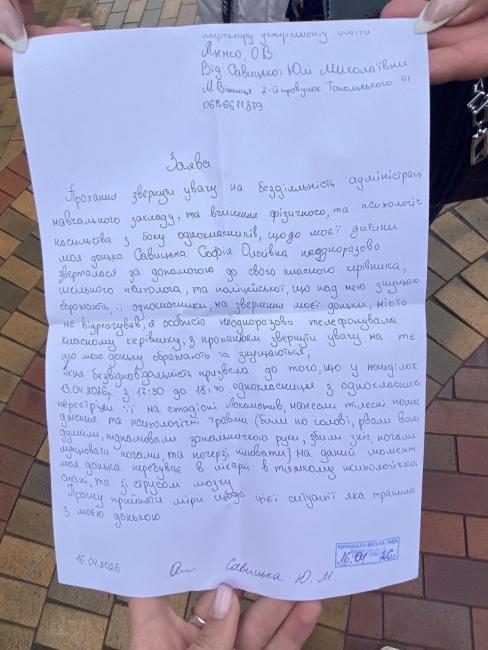 Яценко О.В
Від: Савицької Юлії Миколаївни
м. Вінниця 2-й провулок Топольського 41
0686611379
Заява
Прохання звернути увагу на бездіяльність адміністрації
навчального закладу, та вчинення фізичного, та психологіч
насильства з боку однокласників, щодо моєї дитини
моя донька Савицька Софія Олегівна неодноразово
зверталася за допомогою до свого класного керівника,
шкільного психолога, та поліцейської, що над нею знущаю
ображають, її однокласники, на звернення моєї доньки, ніхто
не відреагував, я особисто неодноразово телефонувала
класному керівнику, з проханням звернути увагу на те
що мою доньку ображають та знущаються,
їхня безвідповідальність призвела до того, що у понеділок
13.04.2026р. з 17:30 до 18:40 однокласниця з однокласник
перестріли її на стадіоні Локомотив, нанесли тілесні пошк
дження та психологічні травми (били по голові, рвали вол
душили, підпалювали запальничкою руки, збили з ніг, ногами
луцювали ногами, та почерзі плювали) на даний момент
моя донька перебуває в лікарні в тяжкому психологічно
стані, та зі струсом мозку
Прошу прийняти міри щодо цієї ситуації яка трапила
з моєю донькою
16.04.2026
Савицька Ю. М
16. 04 26